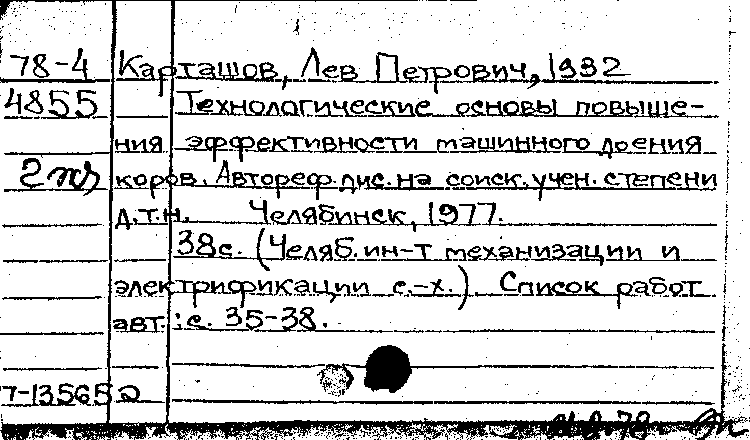 78-4 Карташов, Лев Петрович, 1932
4855 Технологические основы повыше-
ния эффективности машинного доения
коров. Автореф. дис. на соиск. учен. степени
д.т.н. Челябинск, 1977.
38с. (Челяб. ин-т механизации и
электрификации с.-х.). Список работ
авт.: с. 35-38.
7-13565а